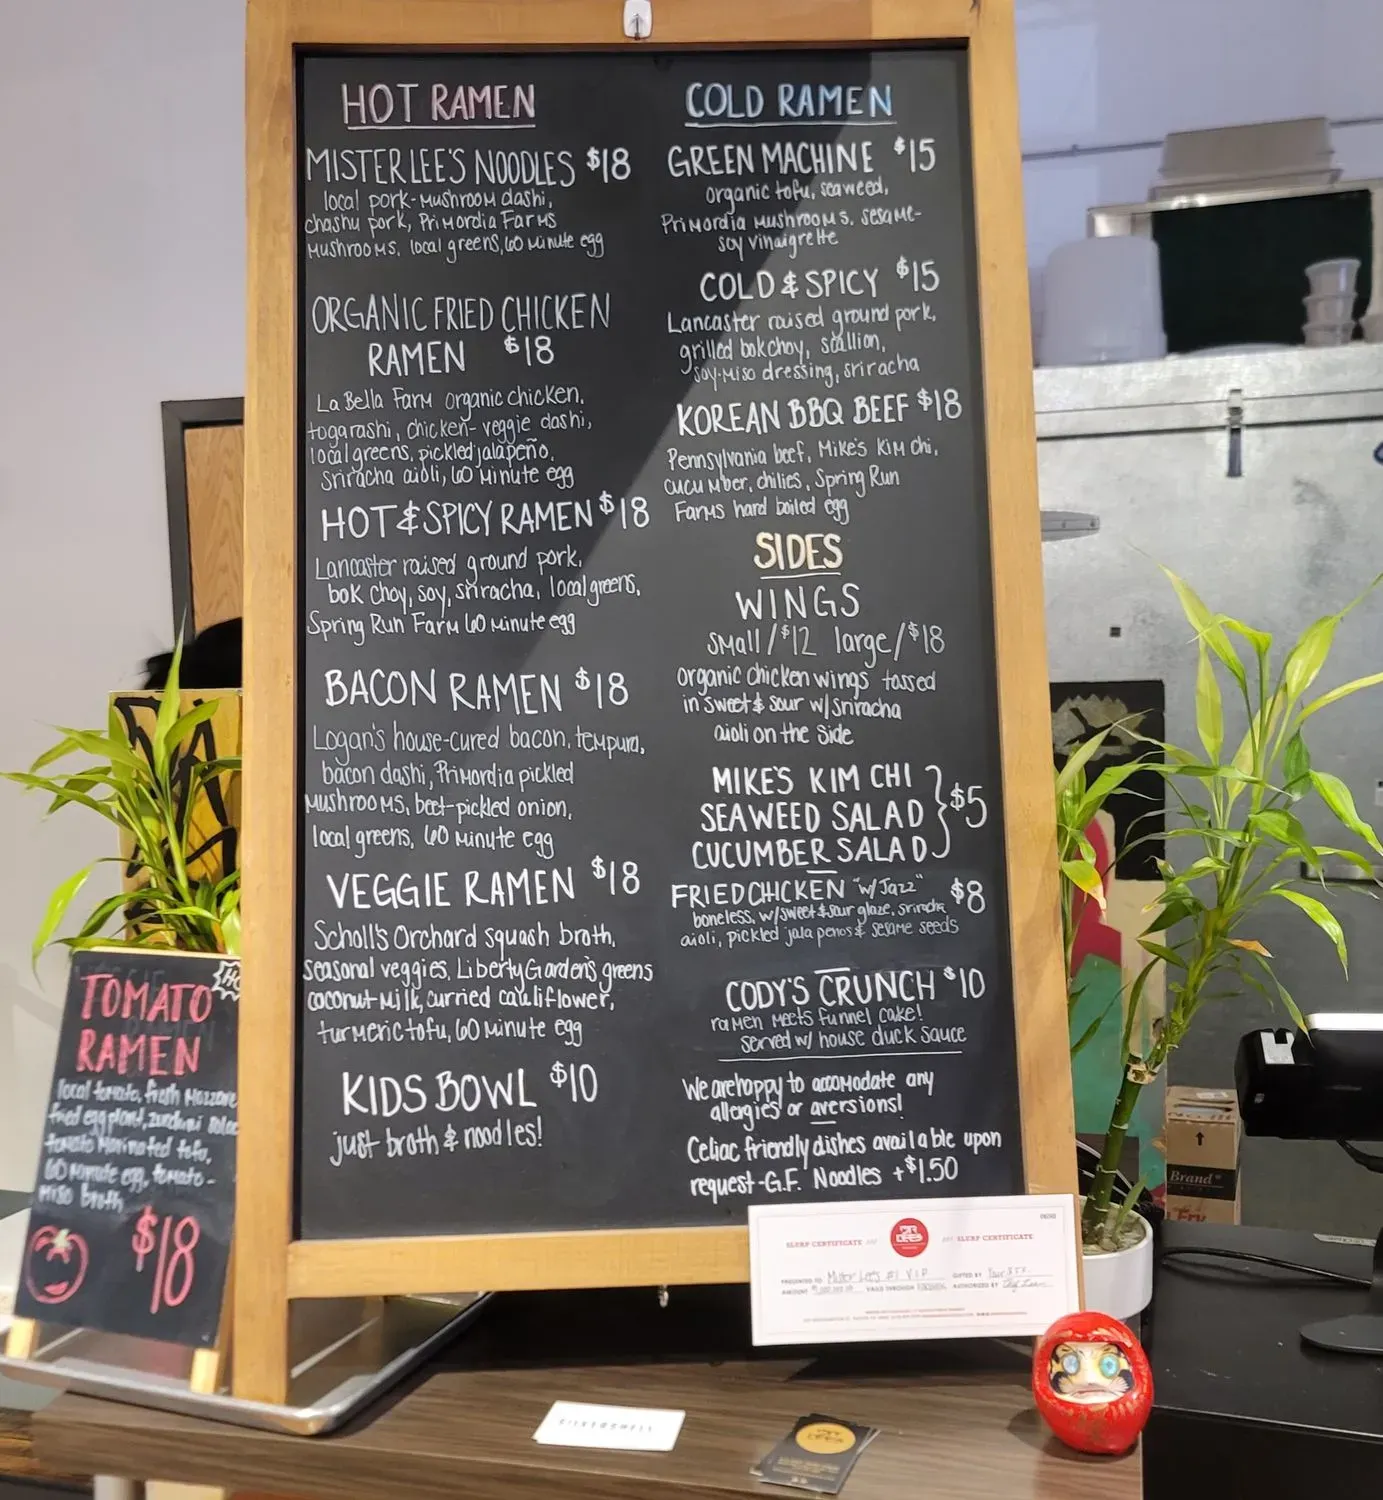 HOT RAMEN
MISTER LEE'S NOODLES $18
local pork-mushroom dashi,
chashu pork, Primordia Farms
mushrooms, local greens, 60 minute egg
ORGANIC FRIED CHICKEN
RAMEN $18
La Bella Farm organic chicken,
togarashi, chicken-veggie dashi,
local greens, pickled jalapeño,
sriracha aioli, 60 minute egg
HOT & SPICY RAMEN $18
Lancaster raised ground pork,
bok choy, soy, sriracha, local greens,
Spring Run Farm 60 minute egg
BACON RAMEN $18
Logan's house-cured bacon, tempura,
bacon dashi, Primordia pickled
mushrooms, beet-pickled onion,
local greens, 60 minute egg
VEGGIE RAMEN $18
Scholl's Orchard squash broth,
seasonal veggies, Liberty Garden's greens
coconut milk, curried cauliflower,
turmeric tofu, 60 minute egg
KIDS BOWL $10
just broth & noodles!
COLD RAMEN
GREEN MACHINE $15
organic tofu, seaweed,
Primordia mushrooms, sesame-
soy vinaigrette
COLD & SPICY $15
Lancaster raised ground pork,
grilled bok choy, scallion,
soy-miso dressing, sriracha
KOREAN BBQ BEEF $18
Pennsylvania beef, Mike's Kim chi,
cucumber, chilies, Spring Run
Farms hard boiled egg
SIDES
WINGS
small/$12 large/$18
organic chicken wings tossed
in sweet & sour w/ sriracha
aioli on the side
MIKE'S KIM CHI
SEAWEED SALAD } $5
CUCUMBER SALAD
FRIED CHICKEN "w/ Jazz" $8
boneless, w/ sweet & sour glaze, sriracha
aioli, pickled jalapenos & sesame seeds
CODY'S CRUNCH $10
ramen meets funnel cake!
served w/ house duck sauce
We are happy to accomodate any
allergies or aversions!
Celiac friendly dishes available upon
request - G.F. Noodles +$1.50
TOMATO
RAMEN
local tomato, fresh mozzare
fried eggplant, zucchini
tomato marinated tofu,
60 minute egg, tomato-
miso broth
$18
SLURP CERTIFICATE
SLURP CERTIFICATE
PRESENTED TO Mister Lee's #1 V.I.P.
GIFTED BY Your BFF
AMOUNT
VALID THROUGH
AUTHORIZED BY
SILVERSHELL
Brand